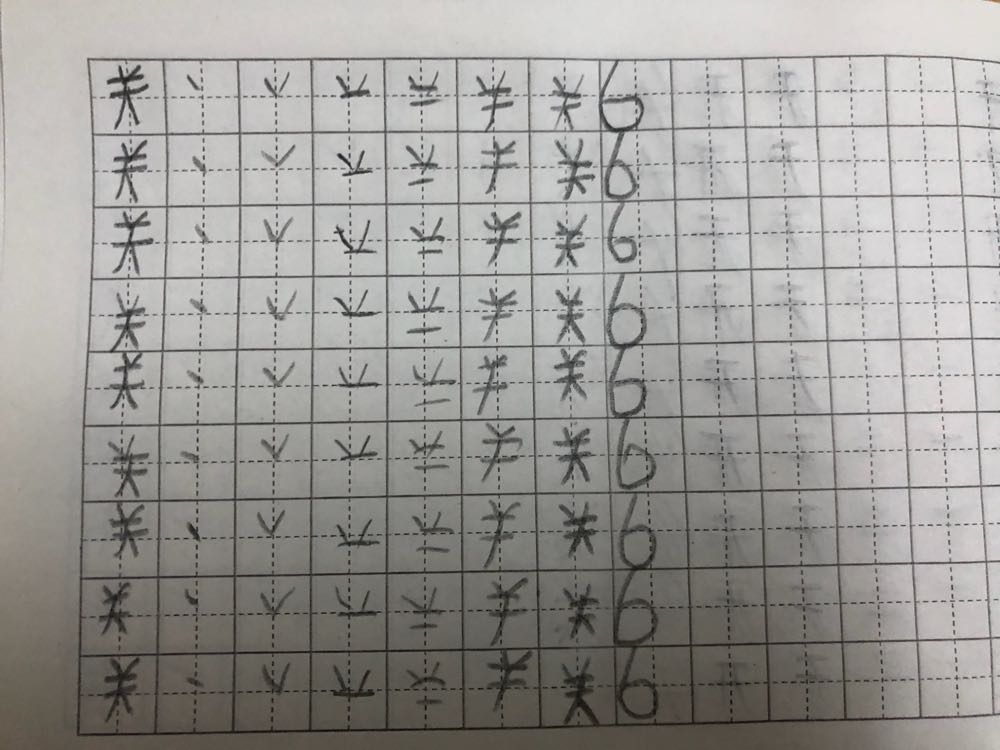 关 丶 丷 䒑 关 6
关 丶 丷 䒑 关 6
关 丶 丷 䒑 关 6
关 丶 丷 䒑 关 6
关 丶 丷 䒑 关 6
关 丶 丷 䒑 关 6
关 丶 丷 䒑 关 6
关 丶 丷 䒑 关 6
关 丶 丷 䒑 关 6